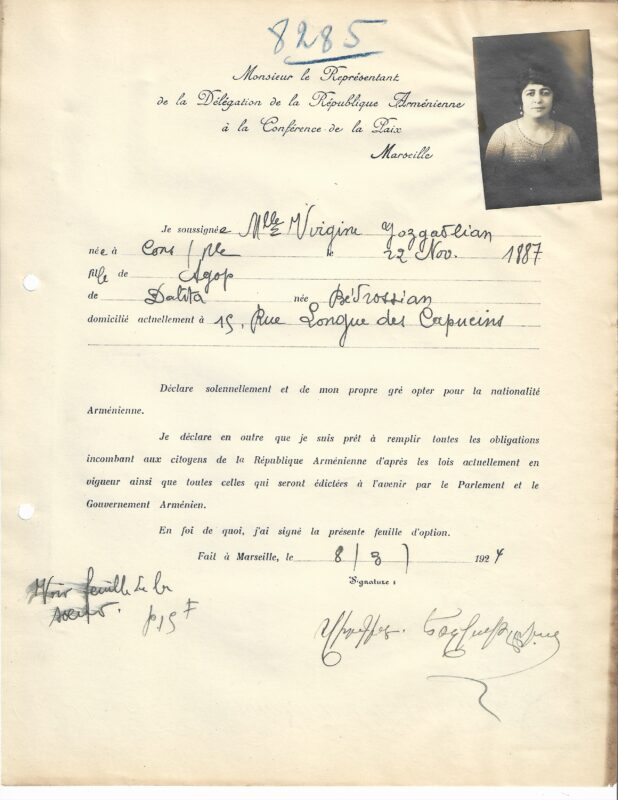 8285
Monsieur le Représentant
de la Délégation de la République Arménienne
à la Conférence de la Paix
Marseille
Je soussignée Mlle Virginie Yozgadlian
née à Cons/ple le 22 Nov. 1887
fille de Agop
de Dalita née Bédrossian
domicilié actuellement à 15, Rue Longue des Capucins
Déclare solennellement et de mon propre gré opter pour la nationalité
Arménienne.
Je déclare en outre que je suis prêt à remplir toutes les obligations
incombant aux citoyens de la République Arménienne d'après les lois actuellement en
vigueur ainsi que toutes celles qui seront édictées à l'avenir par le Parlement et le
Gouvernement Arménien.
En foi de quoi, j'ai signé la présente feuille d'option.
Fait à Marseille, le 8/3/ 1924
Signature :
feuille